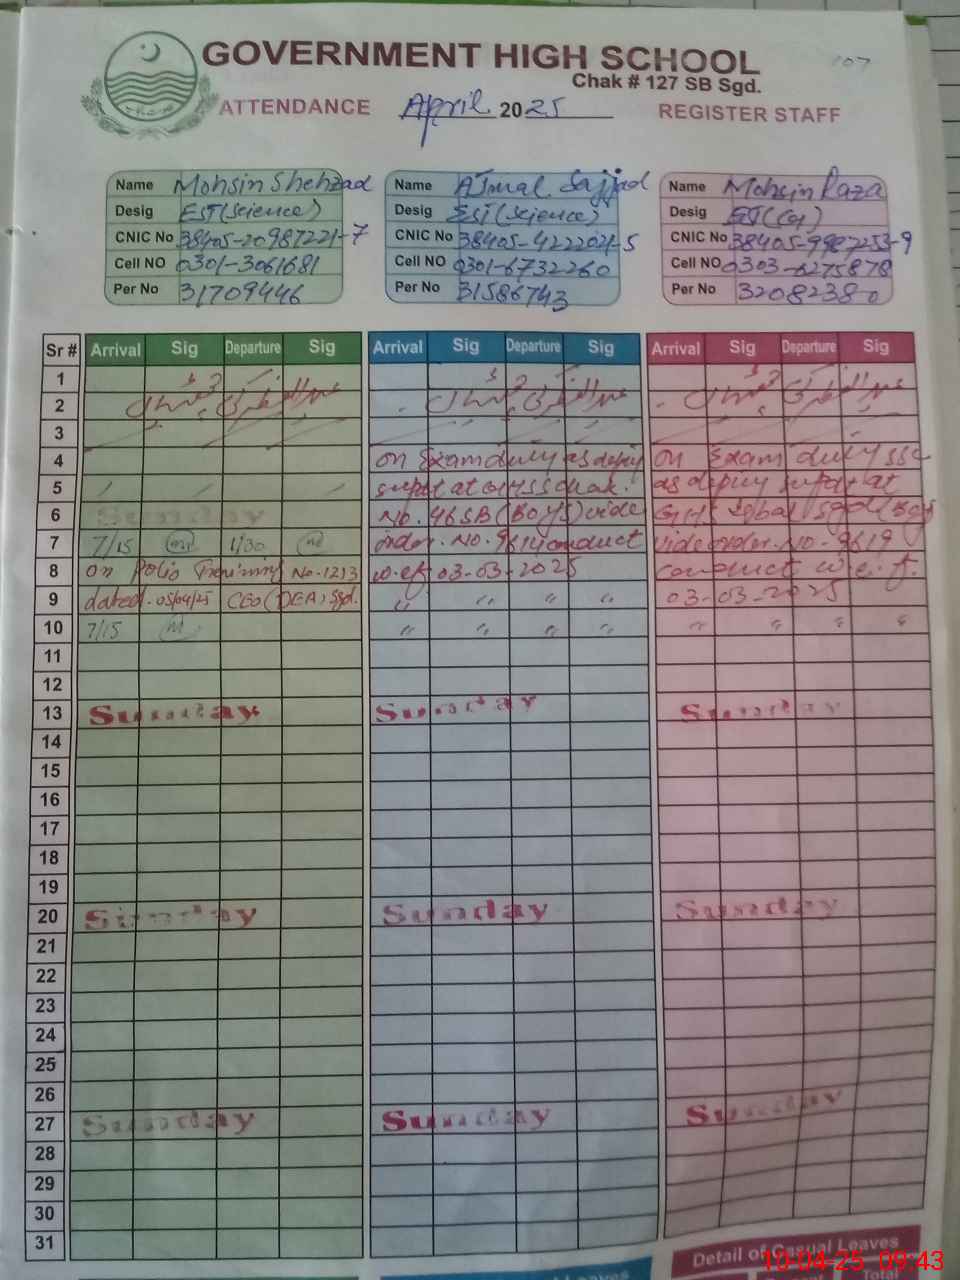 GOVERNMENT HIGH SCHOOL
107
Chak # 127 SB Sgd.
ATTENDANCE April 2025 REGISTER STAFF
Name Mohsin Shehzad
Desig EST(Science)
CNIC No 38405-20987221-7
Cell NO 0301-3061681
Per No 31709446
Name Ajmal Sajjad
Desig EST(Science)
CNIC No 38405-4222021-5
Cell NO 0301-6732260
Per No 31586743
Name Mohsin Raza
Desig
CNIC No 38405-9987253-9
Cell NO 0303-6275878
Per No 32082380
Sr # Arrival Sig Departure Sig Arrival Sig Departure Sig Arrival Sig Departure Sig
1
2
3
4 on Exam duty as deputy on Exam duty SSC
5 supdt at as deputy supdt at
6 Sunday No. 46SB (Boys) vide Iqbal Sgd (Boys)
7 7/15 1/30 order. No. 9614 conduct vide order. No- 9619
8 on Polio Training No. 1213 w.e.f 03-03-2025 conduct w.e.f.
9 dated. 05/04/25 CEO (DEA) Sgd. 〃 〃 〃 〃 03-03-2025
10 7/15 〃 〃 〃 〃 〃 〃 〃 〃
11
12
13 Sunday Sunday Sunday
14
15
16
17
18
19
20 Sunday Sunday Sunday
21
22
23
24
25
26
27 Sunday Sunday Sunday
28
29
30
31
Detail of Casual Leaves
Leaves
Total
10-04-25 09:43